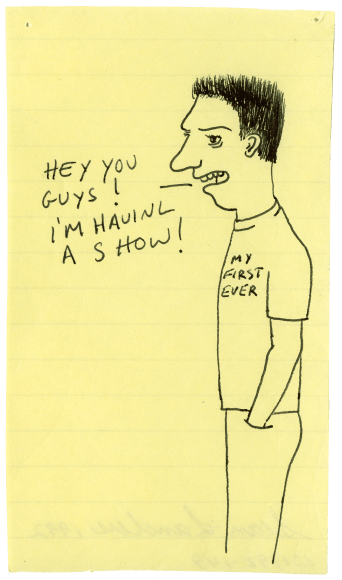 HEY YOU
GUYS!
I'M HAVINL
A SHOW!
MY
FIRST
EVER